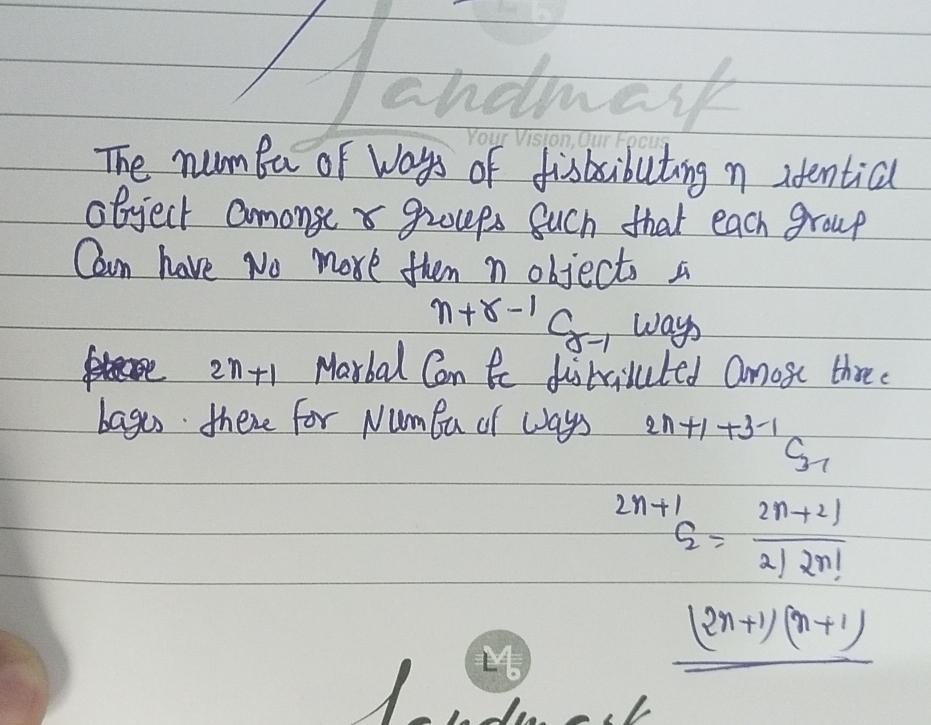 Landmark
Your Vision, Our Focus
The number of ways of distributing n identical
object amonge r groups such that each group
Can have No more then n objects is
n+r-1 C r-1 ways
2n+1 Marbal Can be distributed Amoge three
bages. there for Number of ways 2n+1+3-1 C 3-1
2n+1 C2 = 2n+2! / 2! 2n!
(2n+1)(n+1)
LM
Landmark